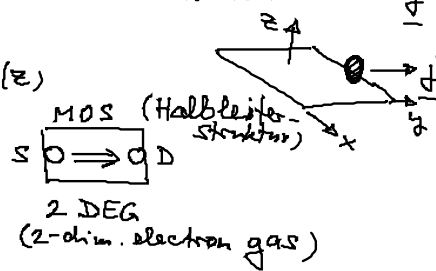 z
j
(z)
MOS (Halbleiter-
struktur)
y
x
S D
2 DEG
(2-dim. electron gas)